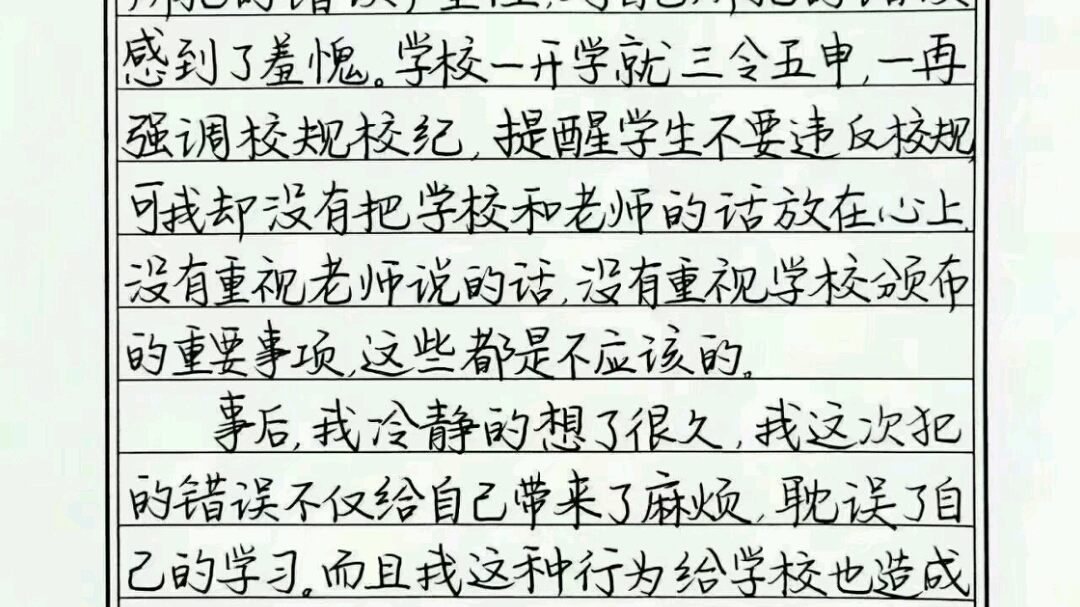 感到了羞愧。学校一开学就三令五申,一再
强调校规校纪,提醒学生不要违反校规,
可我却没有把学校和老师的话放在心上,
没有重视老师说的话,没有重视学校颁布
的重要事项,这些都是不应该的。
事后,我冷静的想了很久,我这次犯
的错误不仅给自己带来了麻烦,耽误了自
己的学习。而且我这种行为给学校也造成